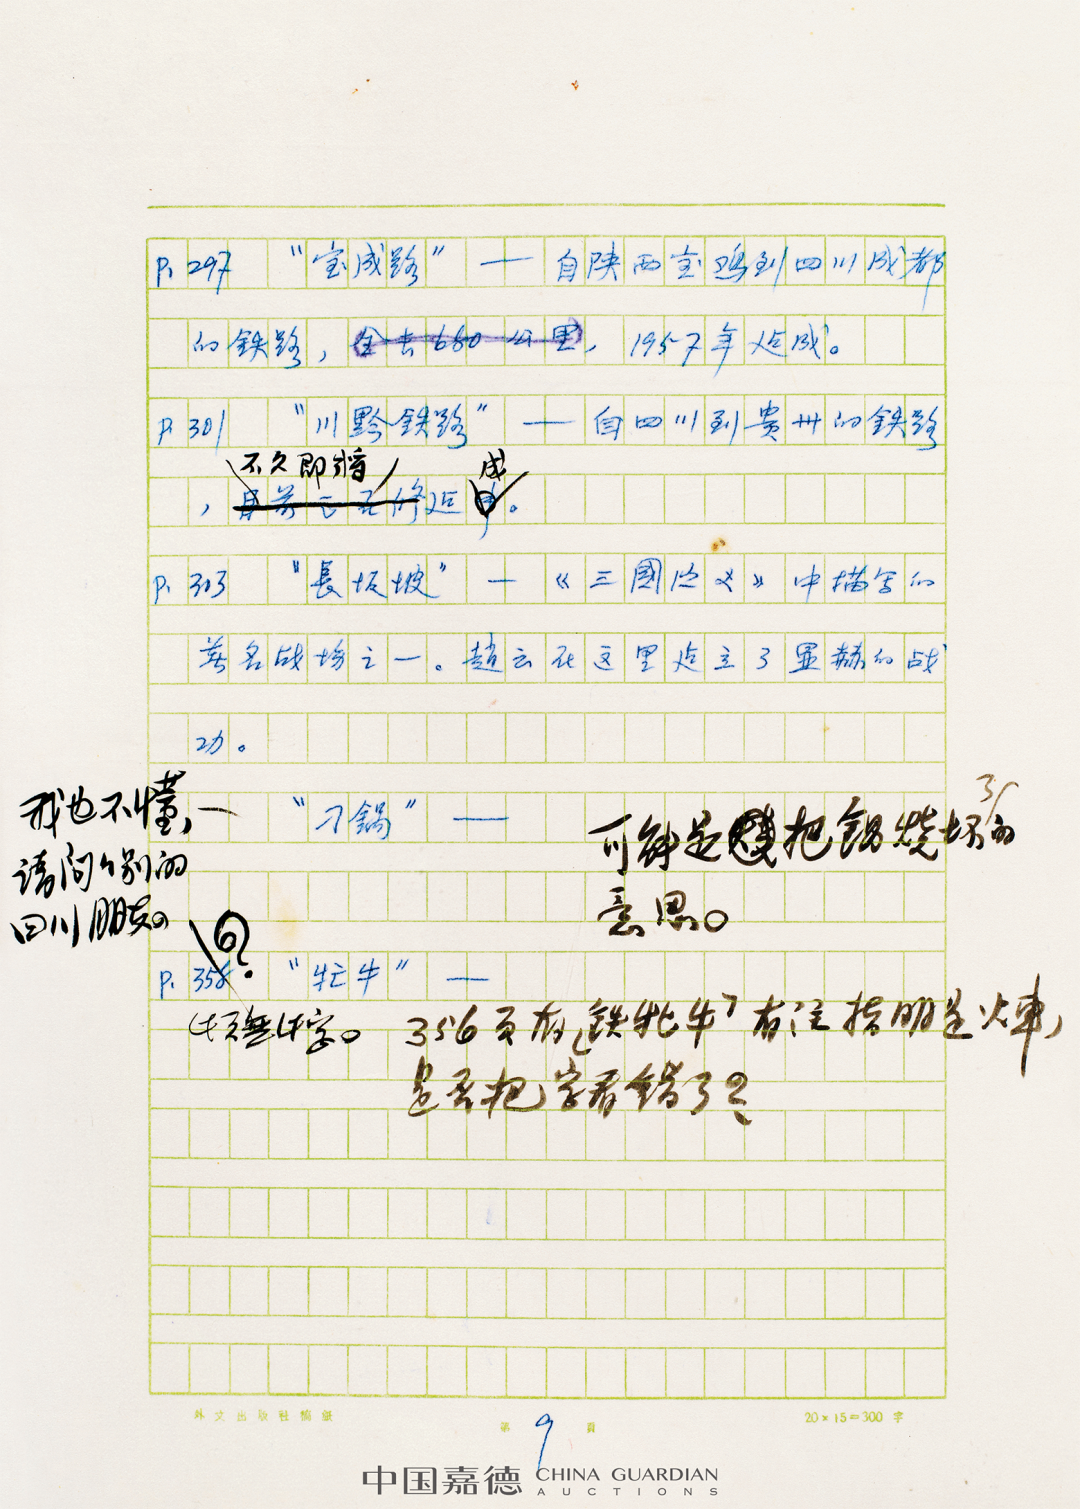 P. 297 “宝成路” — 自陕西宝鸡到四川成都
的铁路，全长680公里，1957年造成。
P. 301 “川黔铁路” — 自四川到貴州的铁路
不久即将 成
，目前正在修造中。
P. 313 “長坂坡” — 《三國演义》中描写的
著名战场之一。趙云在这里建立了显赫的战
功。
我也不懂，
请问个别的
四川朋友。
“刁鍋” —
可能是把鍋烧坏了的
意思。
6？
P. 358 “牤牛” —
此页無此字。
356页有「铁牤牛」有注指明是火車，
是否把字看错了？
外文出版社稿紙
第 9 頁
20×15=300字
中国嘉德 CHINA GUARDIAN
AUCTIONS